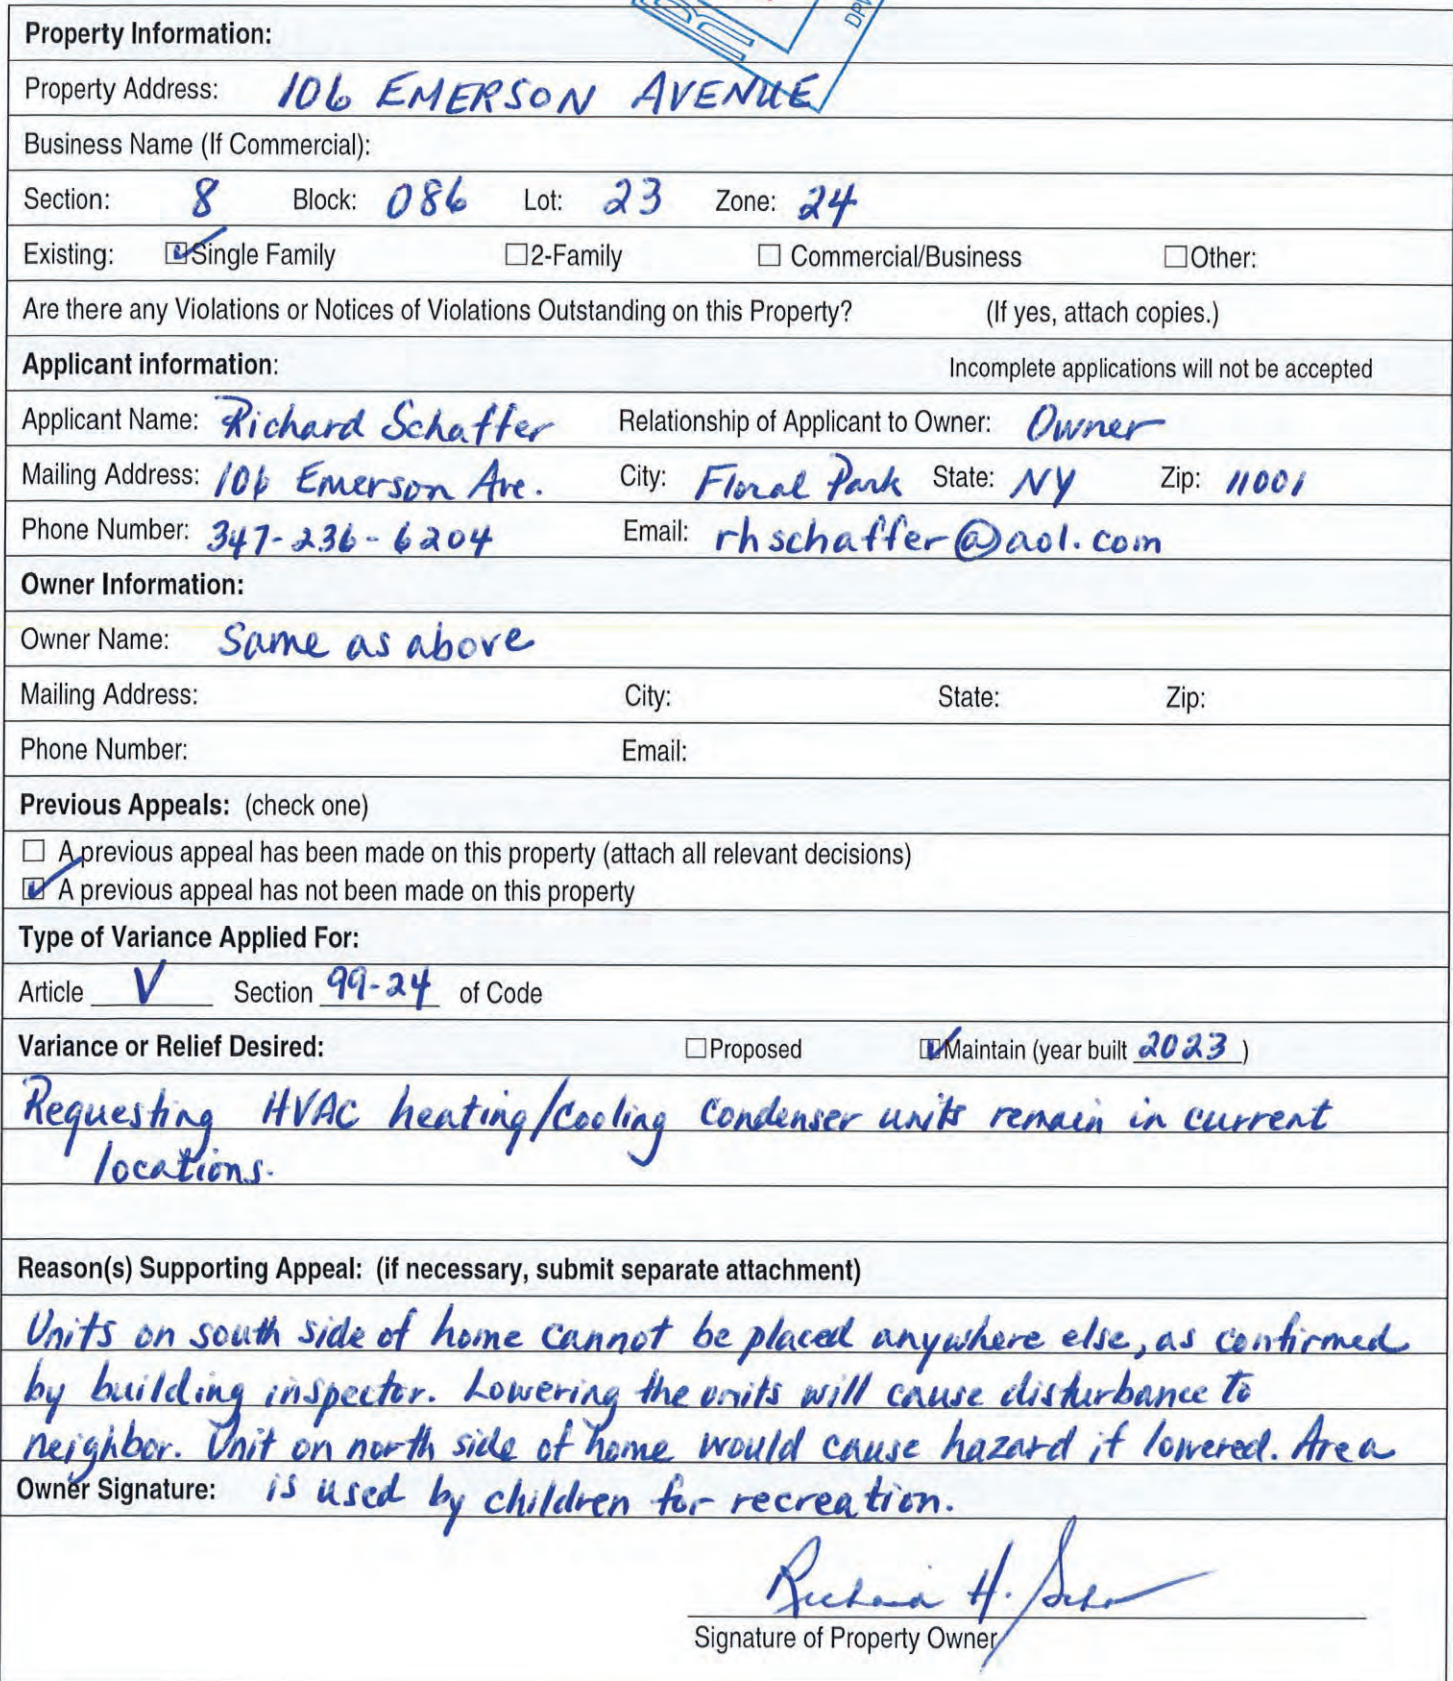 DPW
Property Information:
Property Address: 106 EMERSON AVENUE
Business Name (If Commercial):
Section: 8 Block: 086 Lot: 23 Zone: 24
Existing: ☑Single Family ☐2-Family ☐ Commercial/Business ☐Other:
Are there any Violations or Notices of Violations Outstanding on this Property? (If yes, attach copies.)
Applicant information: Incomplete applications will not be accepted
Applicant Name: Richard Schaffer Relationship of Applicant to Owner: Owner
Mailing Address: 106 Emerson Ave. City: Floral Park State: NY Zip: 11001
Phone Number: 347-236-6204 Email: rhschaffer@aol.com
Owner Information:
Owner Name: Same as above
Mailing Address: City: State: Zip:
Phone Number: Email:
Previous Appeals: (check one)
☐ A previous appeal has been made on this property (attach all relevant decisions)
☑ A previous appeal has not been made on this property
Type of Variance Applied For:
Article V Section 99-24 of Code
Variance or Relief Desired: ☐Proposed ☑Maintain (year built 2023)
Requesting HVAC heating/cooling condenser units remain in current
locations.
Reason(s) Supporting Appeal: (if necessary, submit separate attachment)
Units on south side of home cannot be placed anywhere else, as confirmed
by building inspector. Lowering the units will cause disturbance to
neighbor. Unit on north side of home would cause hazard if lowered. Area
Owner Signature: is used by children for recreation.
Richard H.
Signature of Property Owner